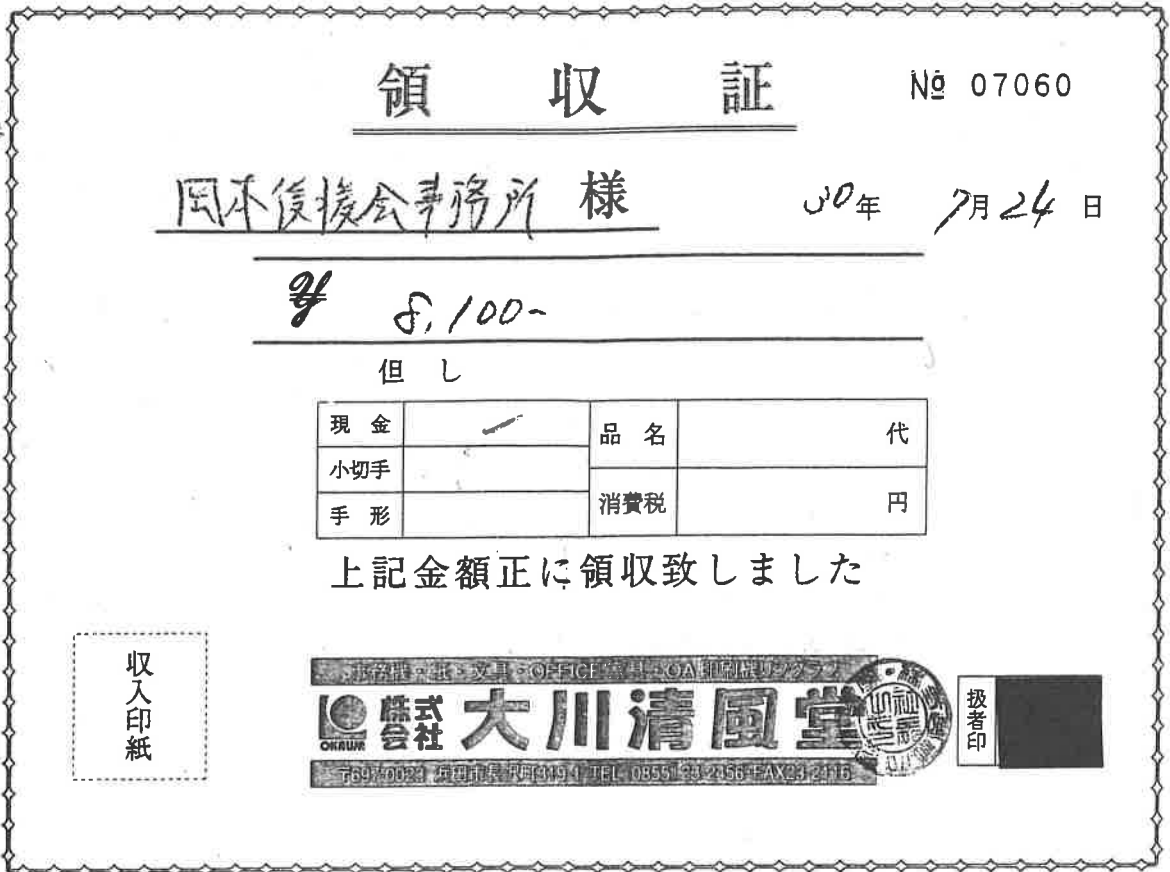 領収証
№ 07060
岡本後援会事務所 様
30年 7月24日
¥ 8,100-
但し
現金
小切手
手形
品名 代
消費税 円
上記金額正に領収致しました
収入印紙
事務機・紙・文具・OFFICE家具・OA印刷機リソグラフ
OKAWA 株式会社 大川清風堂
〒697-0023 浜田市長沢町319-1 TEL 0855
扱者印